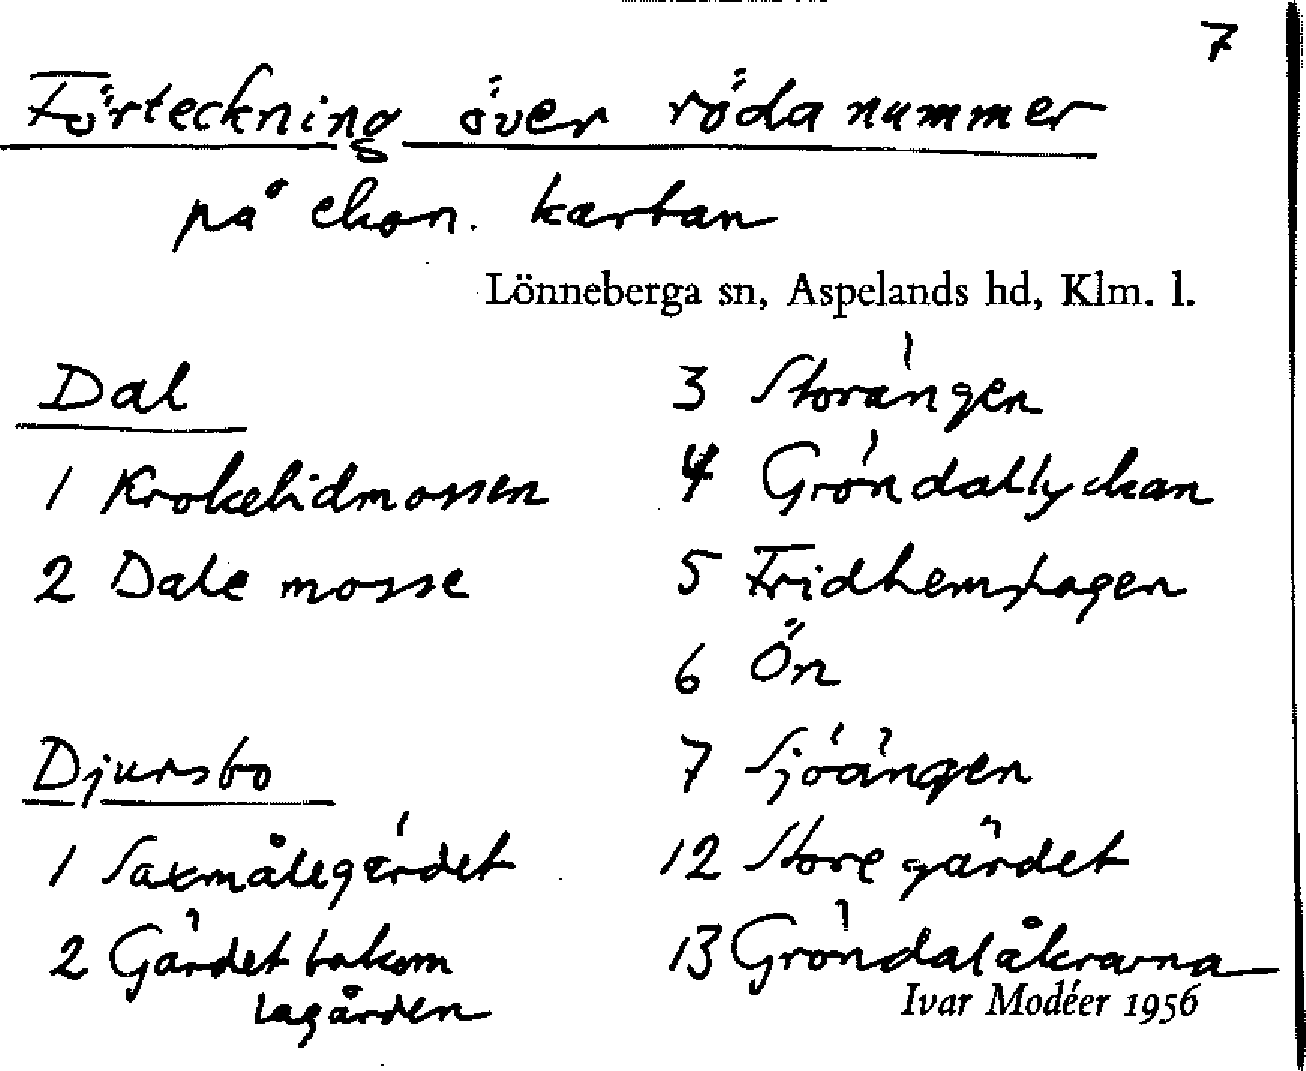 7
Förteckning över röda nummer
på ekon. kartan
Lönneberga sn, Aspelands hd, Klm. l.
Dal
1 Krokelidmossen
2 Dale mosse
Djursbo
1 Saxmålegärdet
2 Gärdet bakom
lagården
3 Storängen
4 Gröndallyckan
5 Fridhemshagen
6 Ön
7 Sjöängen
12 Store gärdet
13 Gröndalåkrarna
Ivar Modéer 1956